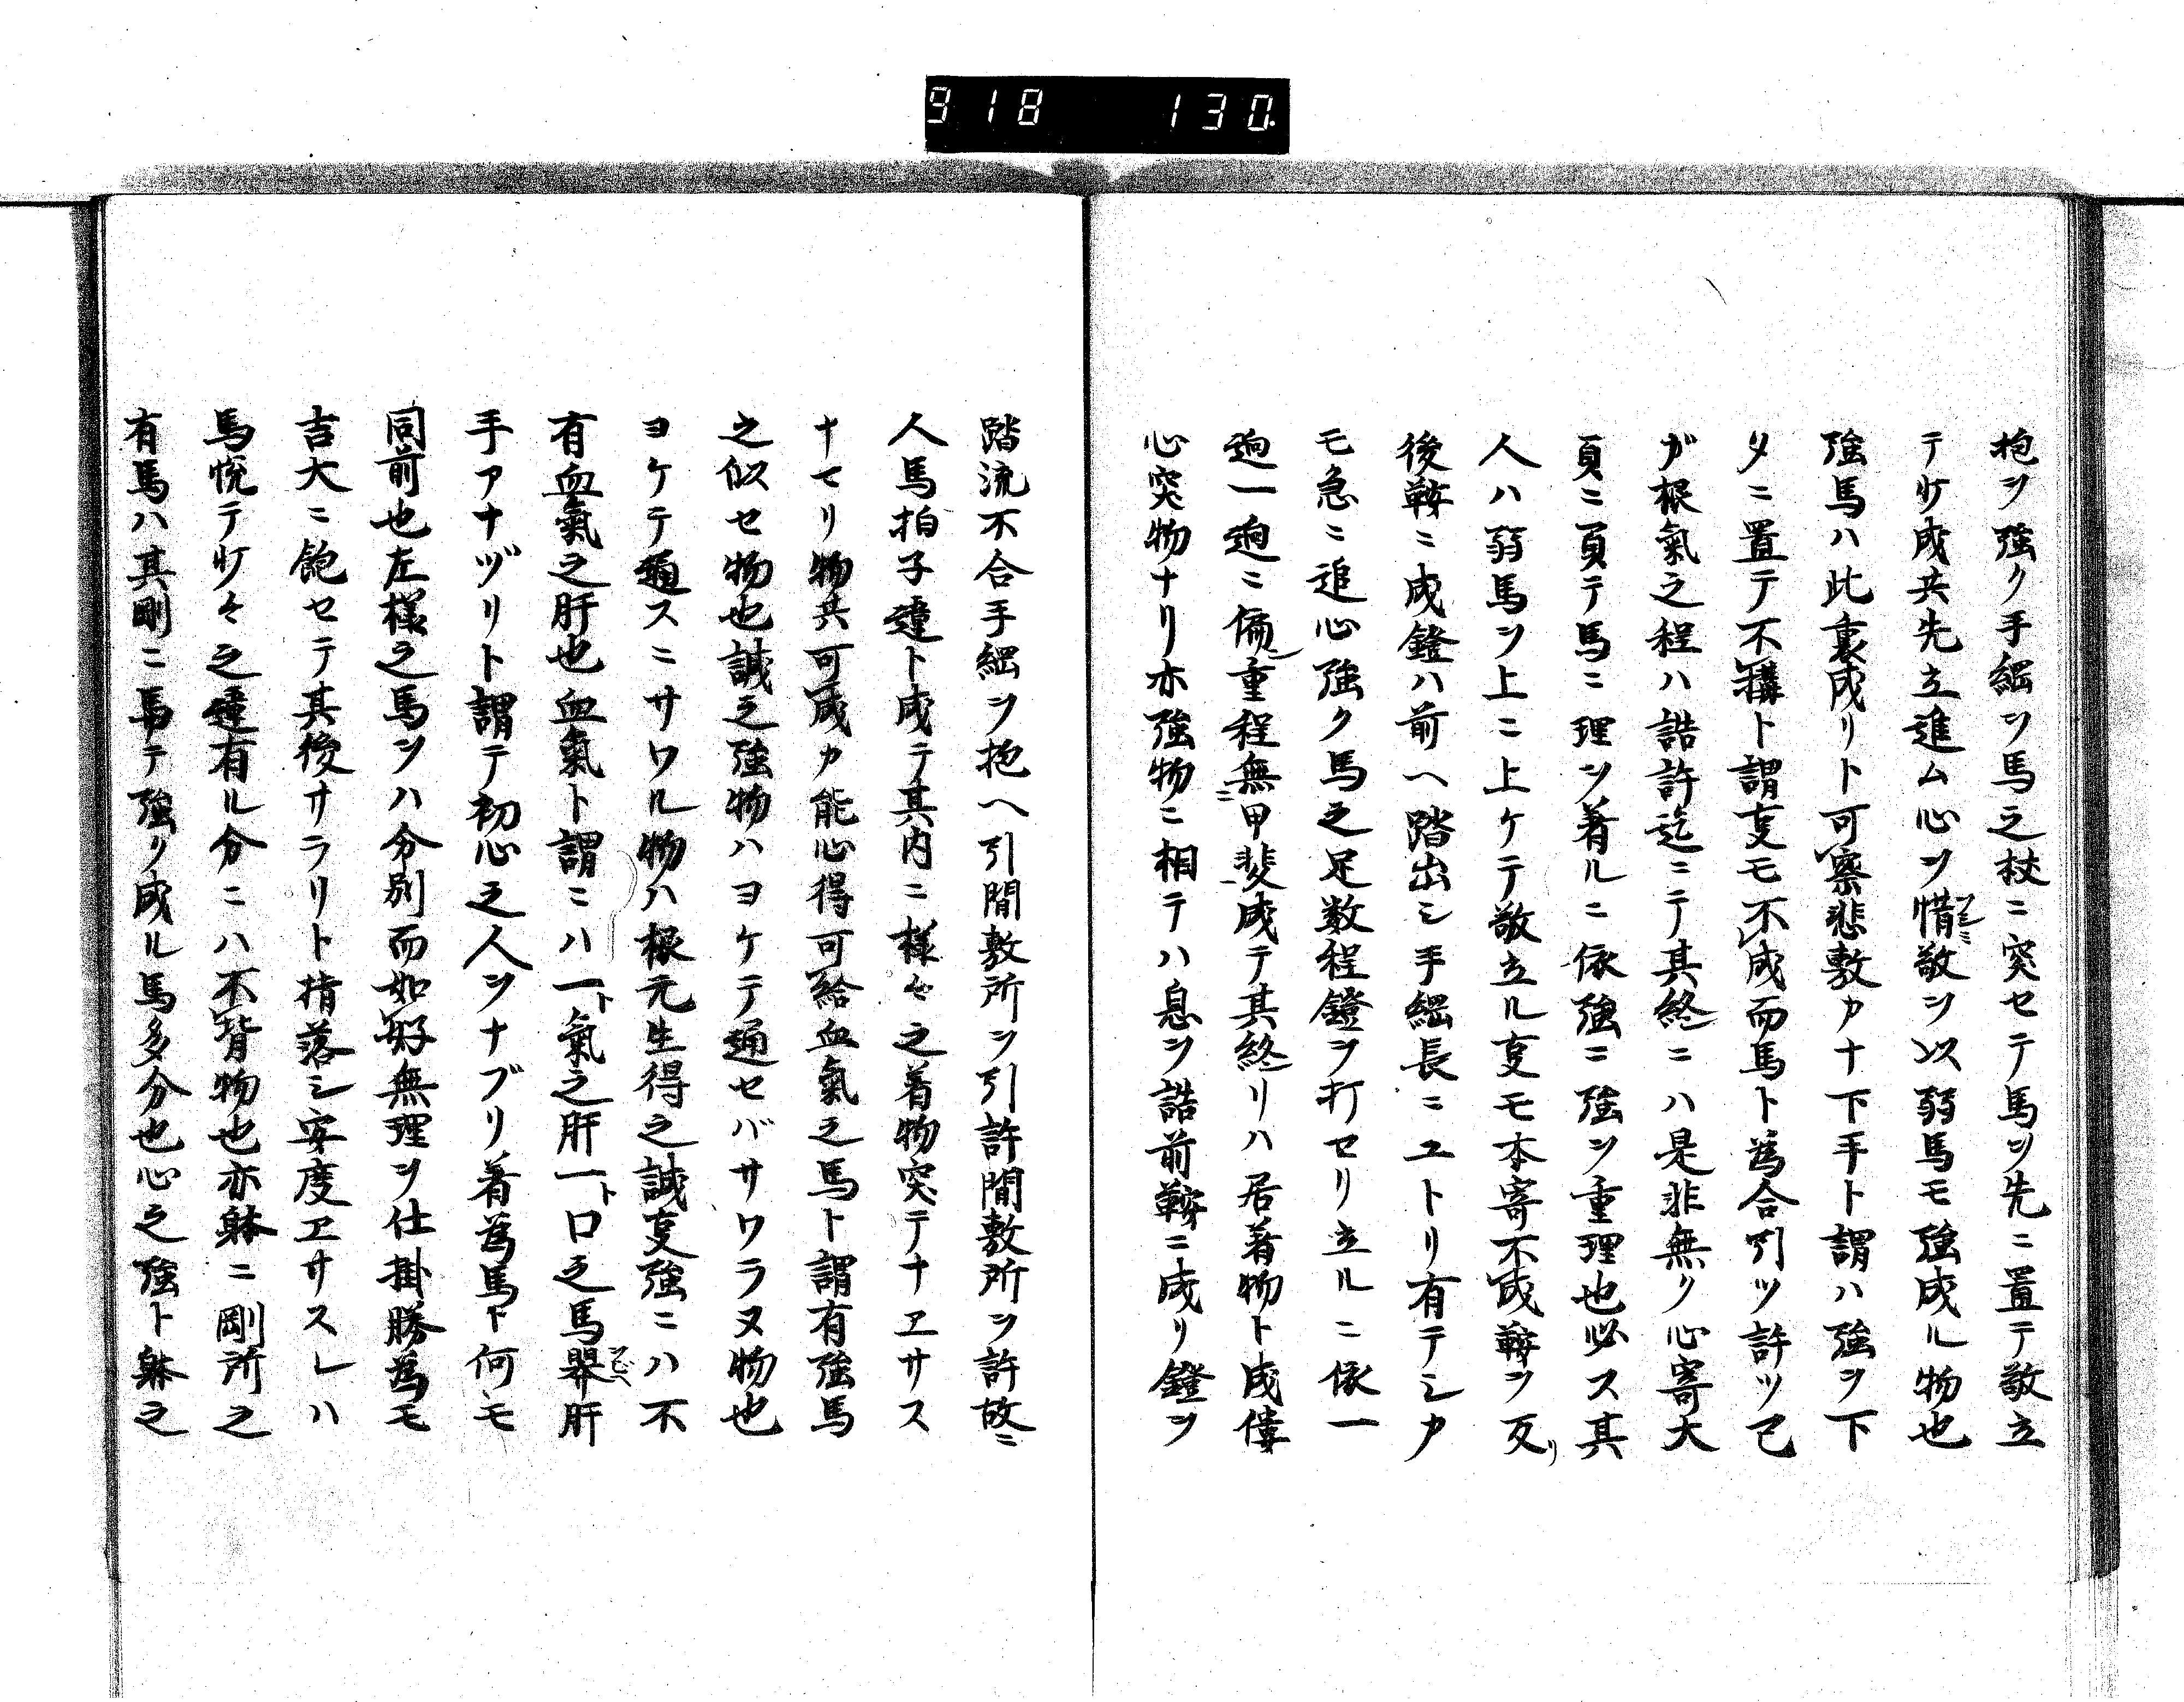 918 130
抱ヲ強ク手綱ヲ馬之杖ニ突セテ馬ヲ先ニ置テ敬立
テ成共先立進ム心ヲ惜敬ヲ以弱馬モ強成ル物也
強馬ハ此裏成リト可察悲敷カナ下手ト謂ハ強ヲ下
タニ置テ不構ト謂叓モ不成而馬ト為合引ツ許ツ己
ガ根氣之程ハ詰許迄ニテ其終ニハ是非無ク心寄大
頁ニ頁テ馬ニ理ヲ着ルニ依強ニ強ヲ重理也必ス其
人ハ弱馬ヲ上ニ上ケテ敬立ル叓モ本寄不成鞍ヲ反リ
後鞍ニ成鐙ハ前ヘ踏出シ手綱長ニユトリ有テシカ
モ急ニ追心強ク馬之足数程鐙ヲ打セリ立ルニ依一
廻一廻ニ偏重程無甲斐成テ其終リハ居着物ト成僂
心突物ナリ亦強物ニ相テハ息ヲ詰前鞍ニ成リ鐙ヲ
踏流不合手綱ヲ抱ヘ引間敷所ヲ引許間敷所ヲ許故ニ
人馬拍子違ト成テ其内ニ様々之着物突テナヱサス
ナセリ物共可成カ能心得可給血氣之馬ト謂有強馬
之似セ物也誠之強物ハヨケテ通セバサワラヌ物也
ヨケテ通スニサワル物ハ根元生得之誠叓強ニハ不
有血氣之肝也血氣ト謂ニハ一ト氣之肝一ト口之馬肝
手アナヅリト謂テ初心之人ヲナブリ着為馬ト何モ
同前也左様之馬ヲハ分別而如好無理ヲ仕掛勝為モ
吉大ニ飽セテ其後サラリト揹落シ安度ヱサスレハ
馬悦テ々之違有ル分ニハ不背物也亦躰ニ剛所之
有馬ハ其剛ニ馬テ強ク成ル馬多分也心之強ト躰之